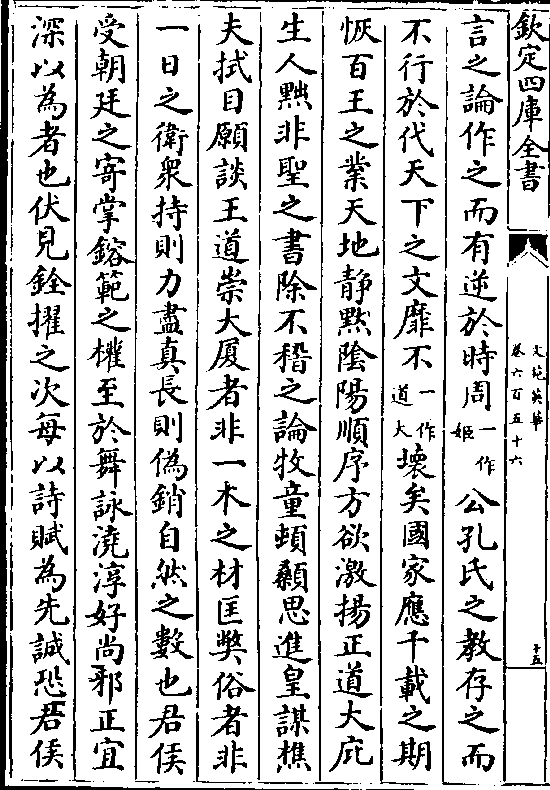 欽定四庫全書
文苑英華
卷六百五十六
十五
言之論作之而有逆於時周一作姬公孔氏之教存之而
不行於代天下之文靡不一作道大壞矣國家應千載之期
恢百王之業天地静黙陰陽順序方欲激揚正道大庇
生人黜非聖之書除不稽之論牧童頓顙思進皇謀樵
夫拭目願談王道崇大厦者非一木之材匡弊俗者非
一日之衛衆持則力盡真長則偽銷自然之數也君侯
受朝廷之寄掌鎔範之權至於舞詠澆淳好尚邪正宜
深以為者也伏見銓擢之次每以詩賦為先誠恐君侯